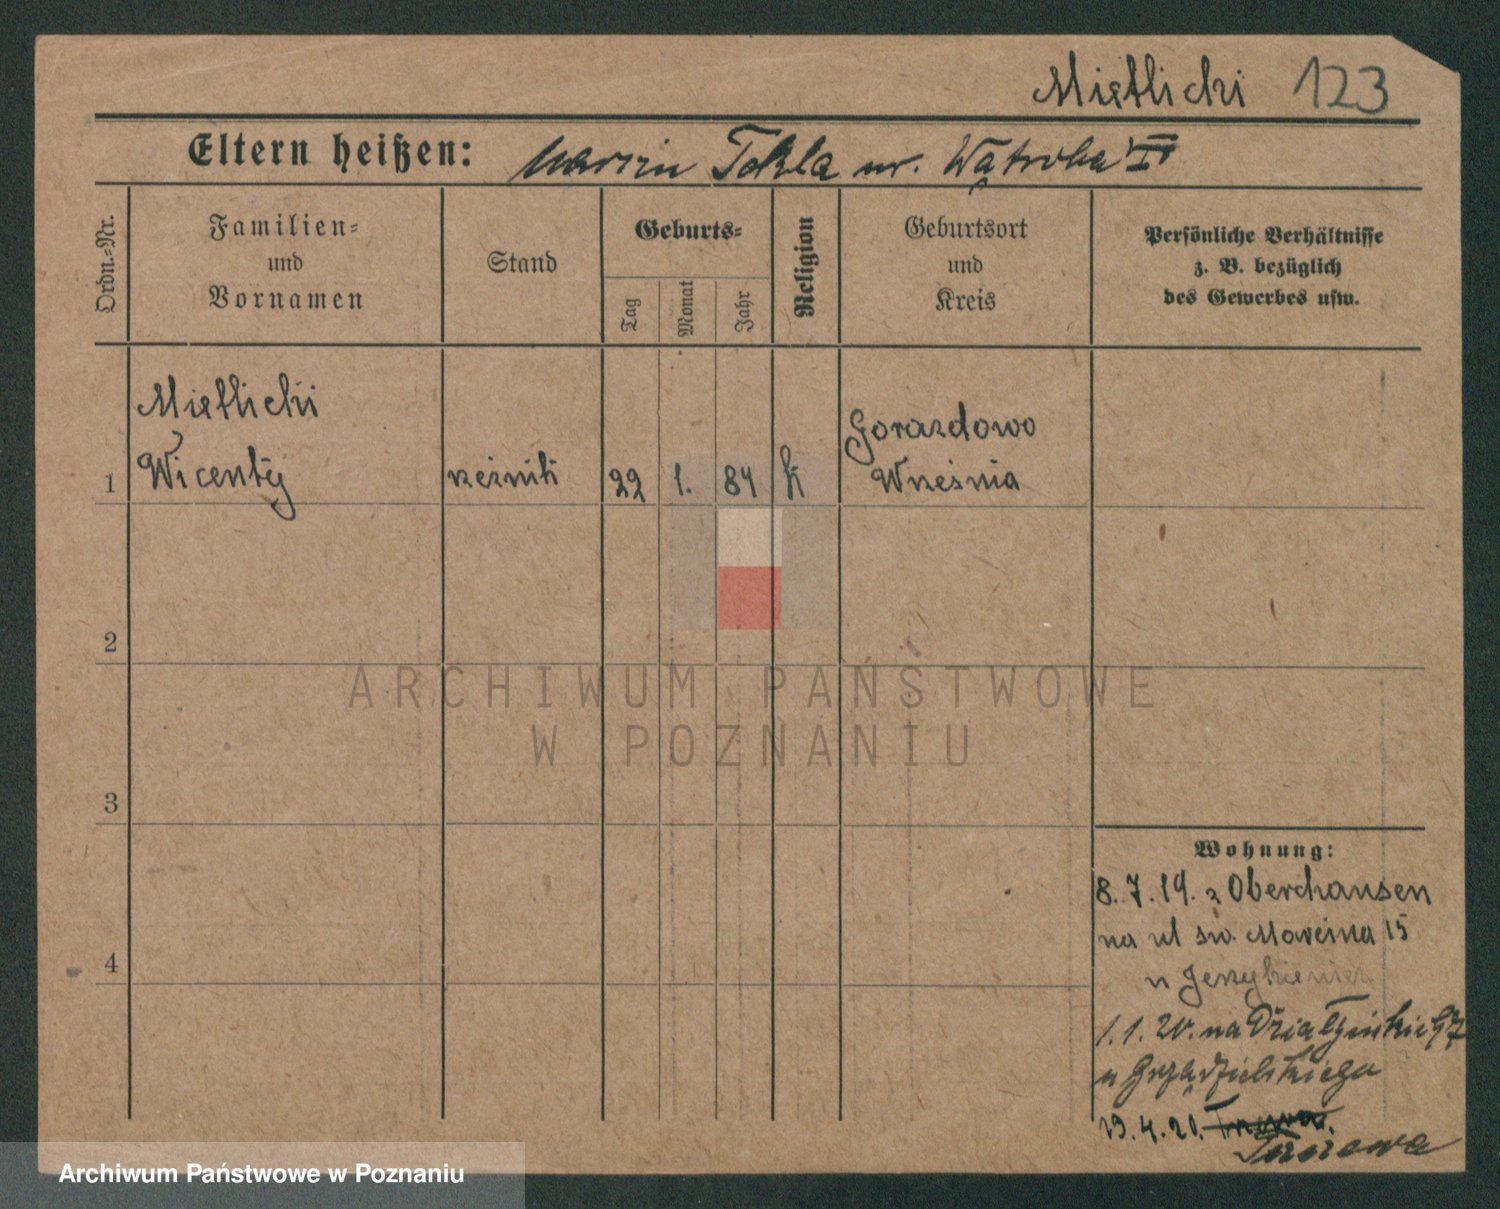 Mietlicki 123
Eltern heißen: Marcin Tekla ur. Wątroba
Ordn.-Nr.
Familien-
und
Vornamen
Stand
Geburts-
Tag
Monat
Jahr
Religion
Geburtsort
und
Kreis
Persönliche Verhältnisse
z. B. bezüglich
des Gewerbes usw.
Mietlicki
Gorazdowo
1 Wicenty rzeźnik 22 1. 84 k Września
2
3
4
Wohnung:
8.7.19. z Oberhausen
na ul św. Marcina 15
u
1.1.20. na
u
29.4.20.
ARCHIWUM PAŃSTWOWE
W POZNANIU
Archiwum Państwowe w Poznaniu